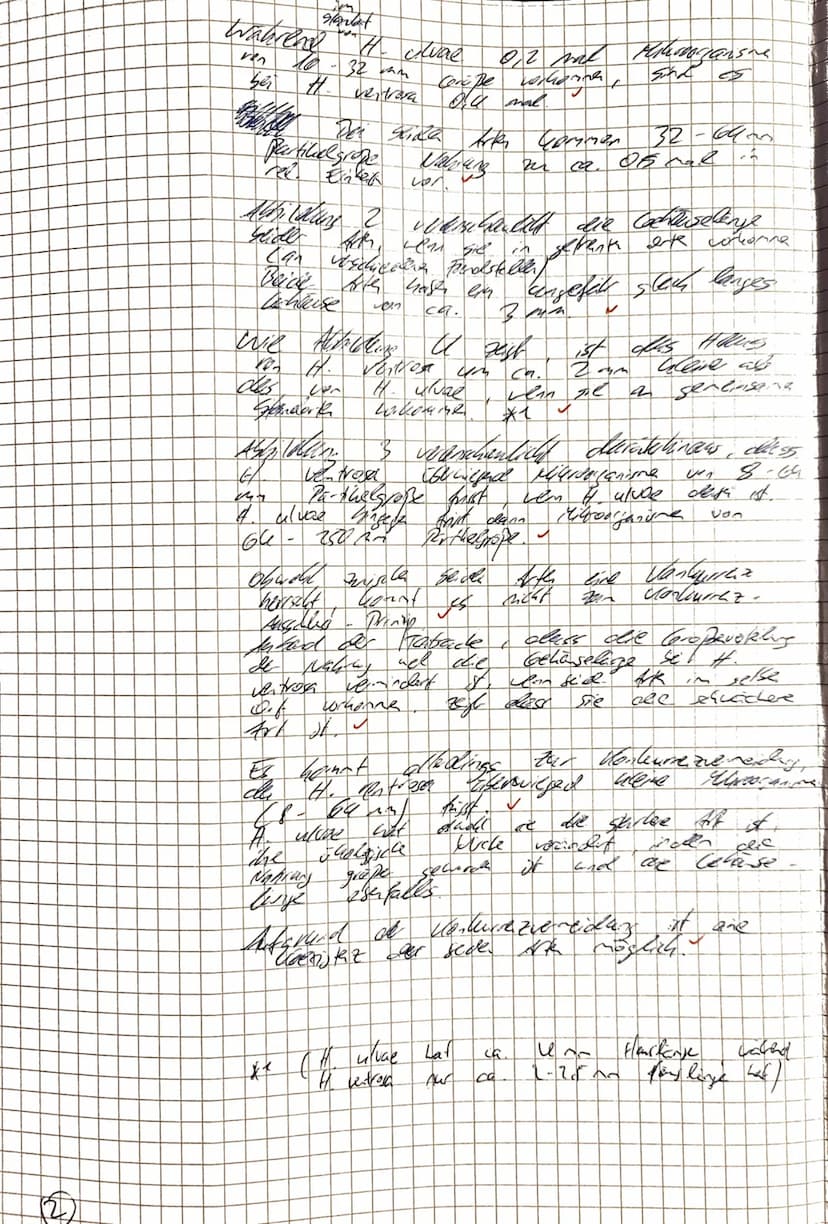 im
Standort
von
Während H. ulvae 0,2 mal Mikroorganisme
von 16 - 32 mm Größe vorkommen, sind es
bei H. ventrosa 0,4 mal.
Bei beiden Arten kommen 32 - 64 mm
Partikelgröße Nahrung zu ca. 0,5 mal in
rel. Einheit vor.
Abbildung 2 veranschaulicht die Gehäuselänge
beider Arten, wenn sie in getrennten Orten vorkommen
(an verschiedenen Fundstellen)
Beide Arten haben ein ungefähr gleich langes
Gehäuse von ca. 3 mm.
Wie Abbildung 4 zeigt, ist das Haus
von H. ventrosa um ca. 2 mm kleiner als
das von H. ulvae, wenn sie an gemeinsame
Standorten vorkommen. *1
Abbildung 3 veranschaulicht darüberhinaus, dass
H. ventrosa überwiegend Mikroorganisme von 8 - 64
mm Partikelgröße frisst wenn H. ulvae da ist.
H. ulvae hingegen frisst dann Mikroorganisme von
64 - 250 mm Partikelgröße.
Obwohl zwischen beiden Arten eine Konkurrenz
herrscht, kommt es nicht zum Konkurrenz-
Ausschluss - Prinzip
Anhand der Tatsache, dass die Größenverteilung
der Nahrung und die Gehäuselänge bei H.
ventrosa vermindert ist, wenn beide Arten im selben
Ort vorkommen, zeigt dass sie die schwächere
Art ist.
Es kommt allerdings zur Konkurrenzvermeidung,
da H. ventrosa überwiegend kleine Mikroorganisme
(8 - 64 mm) frisst.
H. ulvae hat obwohl sie die stärkere Art ist,
ihre ökologische Nische verändert, indem die
Nahrung größer geworden ist und die Gehäuse-
länge ebenfalls.
Aufgrund der Konkurrenzvermeidung ist eine
Koexistenz der beiden Arten möglich.
*1 (H. ulvae hat ca. 4 mm Hauslänge, während
H. ventrosa nur ca. 2-2,5 mm Hauslänge hat)
2